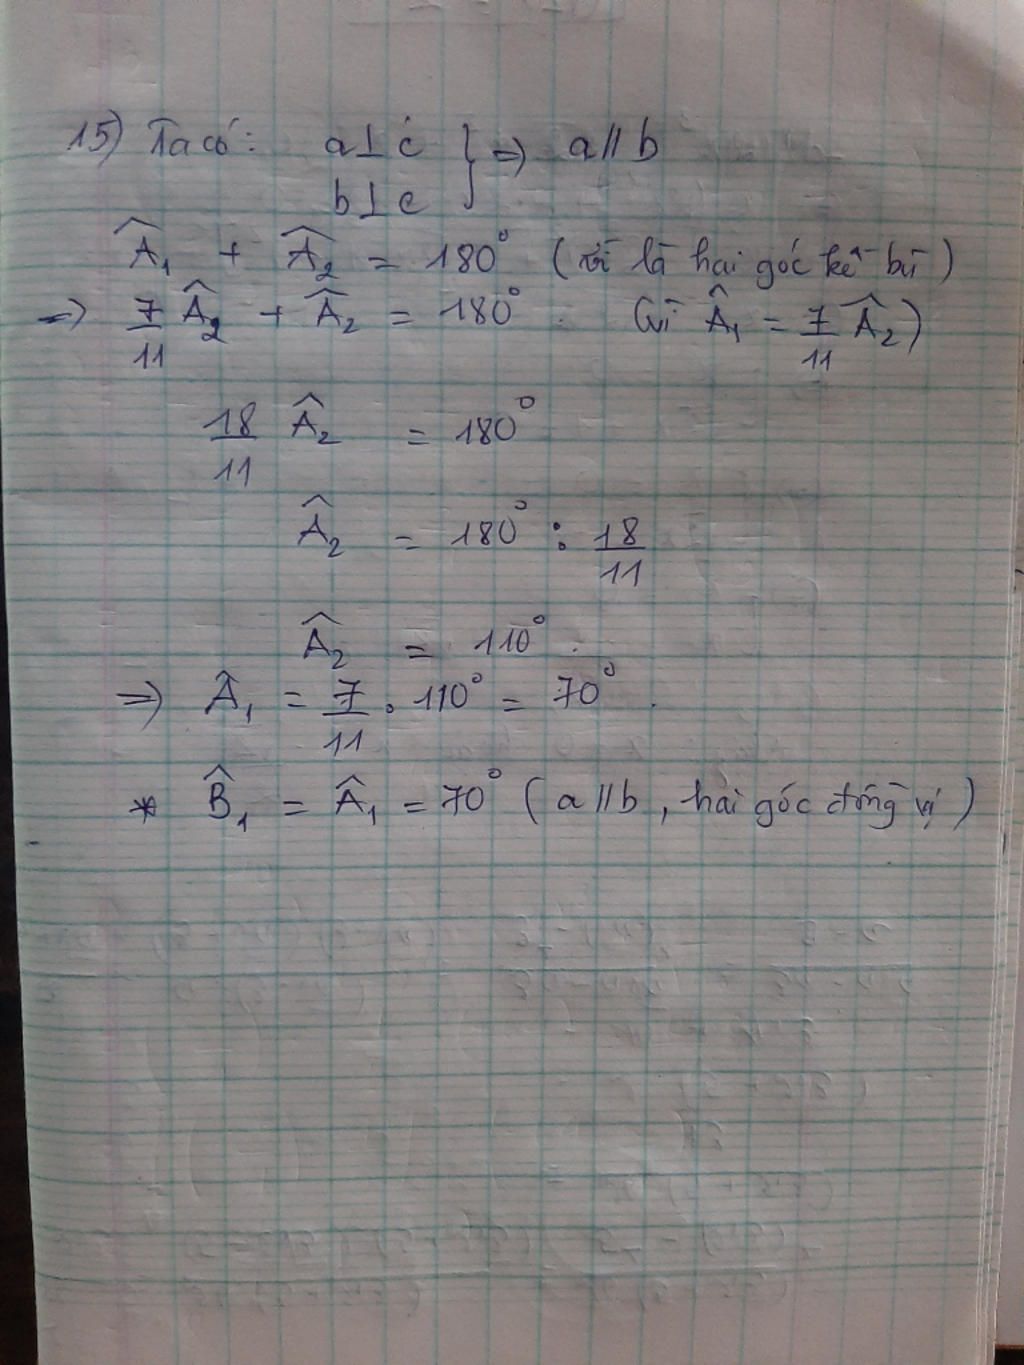 15) Ta có: a⊥c } => a//b
b⊥c
Â₁ + Â₂ = 180° (vì là hai góc kề bù)
=> 7/11 Â₂ + Â₂ = 180° (vì Â₁ = 7/11 Â₂)
18/11 Â₂ = 180°
Â₂ = 180° : 18/11
Â₂ = 110°.
=> Â₁ = 7/11 . 110° = 70°.
* B̂₁ = Â₁ = 70° (a//b, hai góc đồng vị)